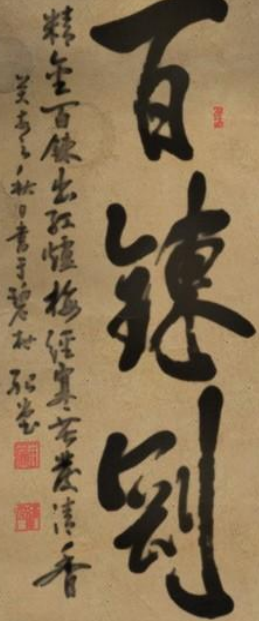 百鍊剛
精金百鍊出紅爐梅經寒苦發清香
秋日書于碧村